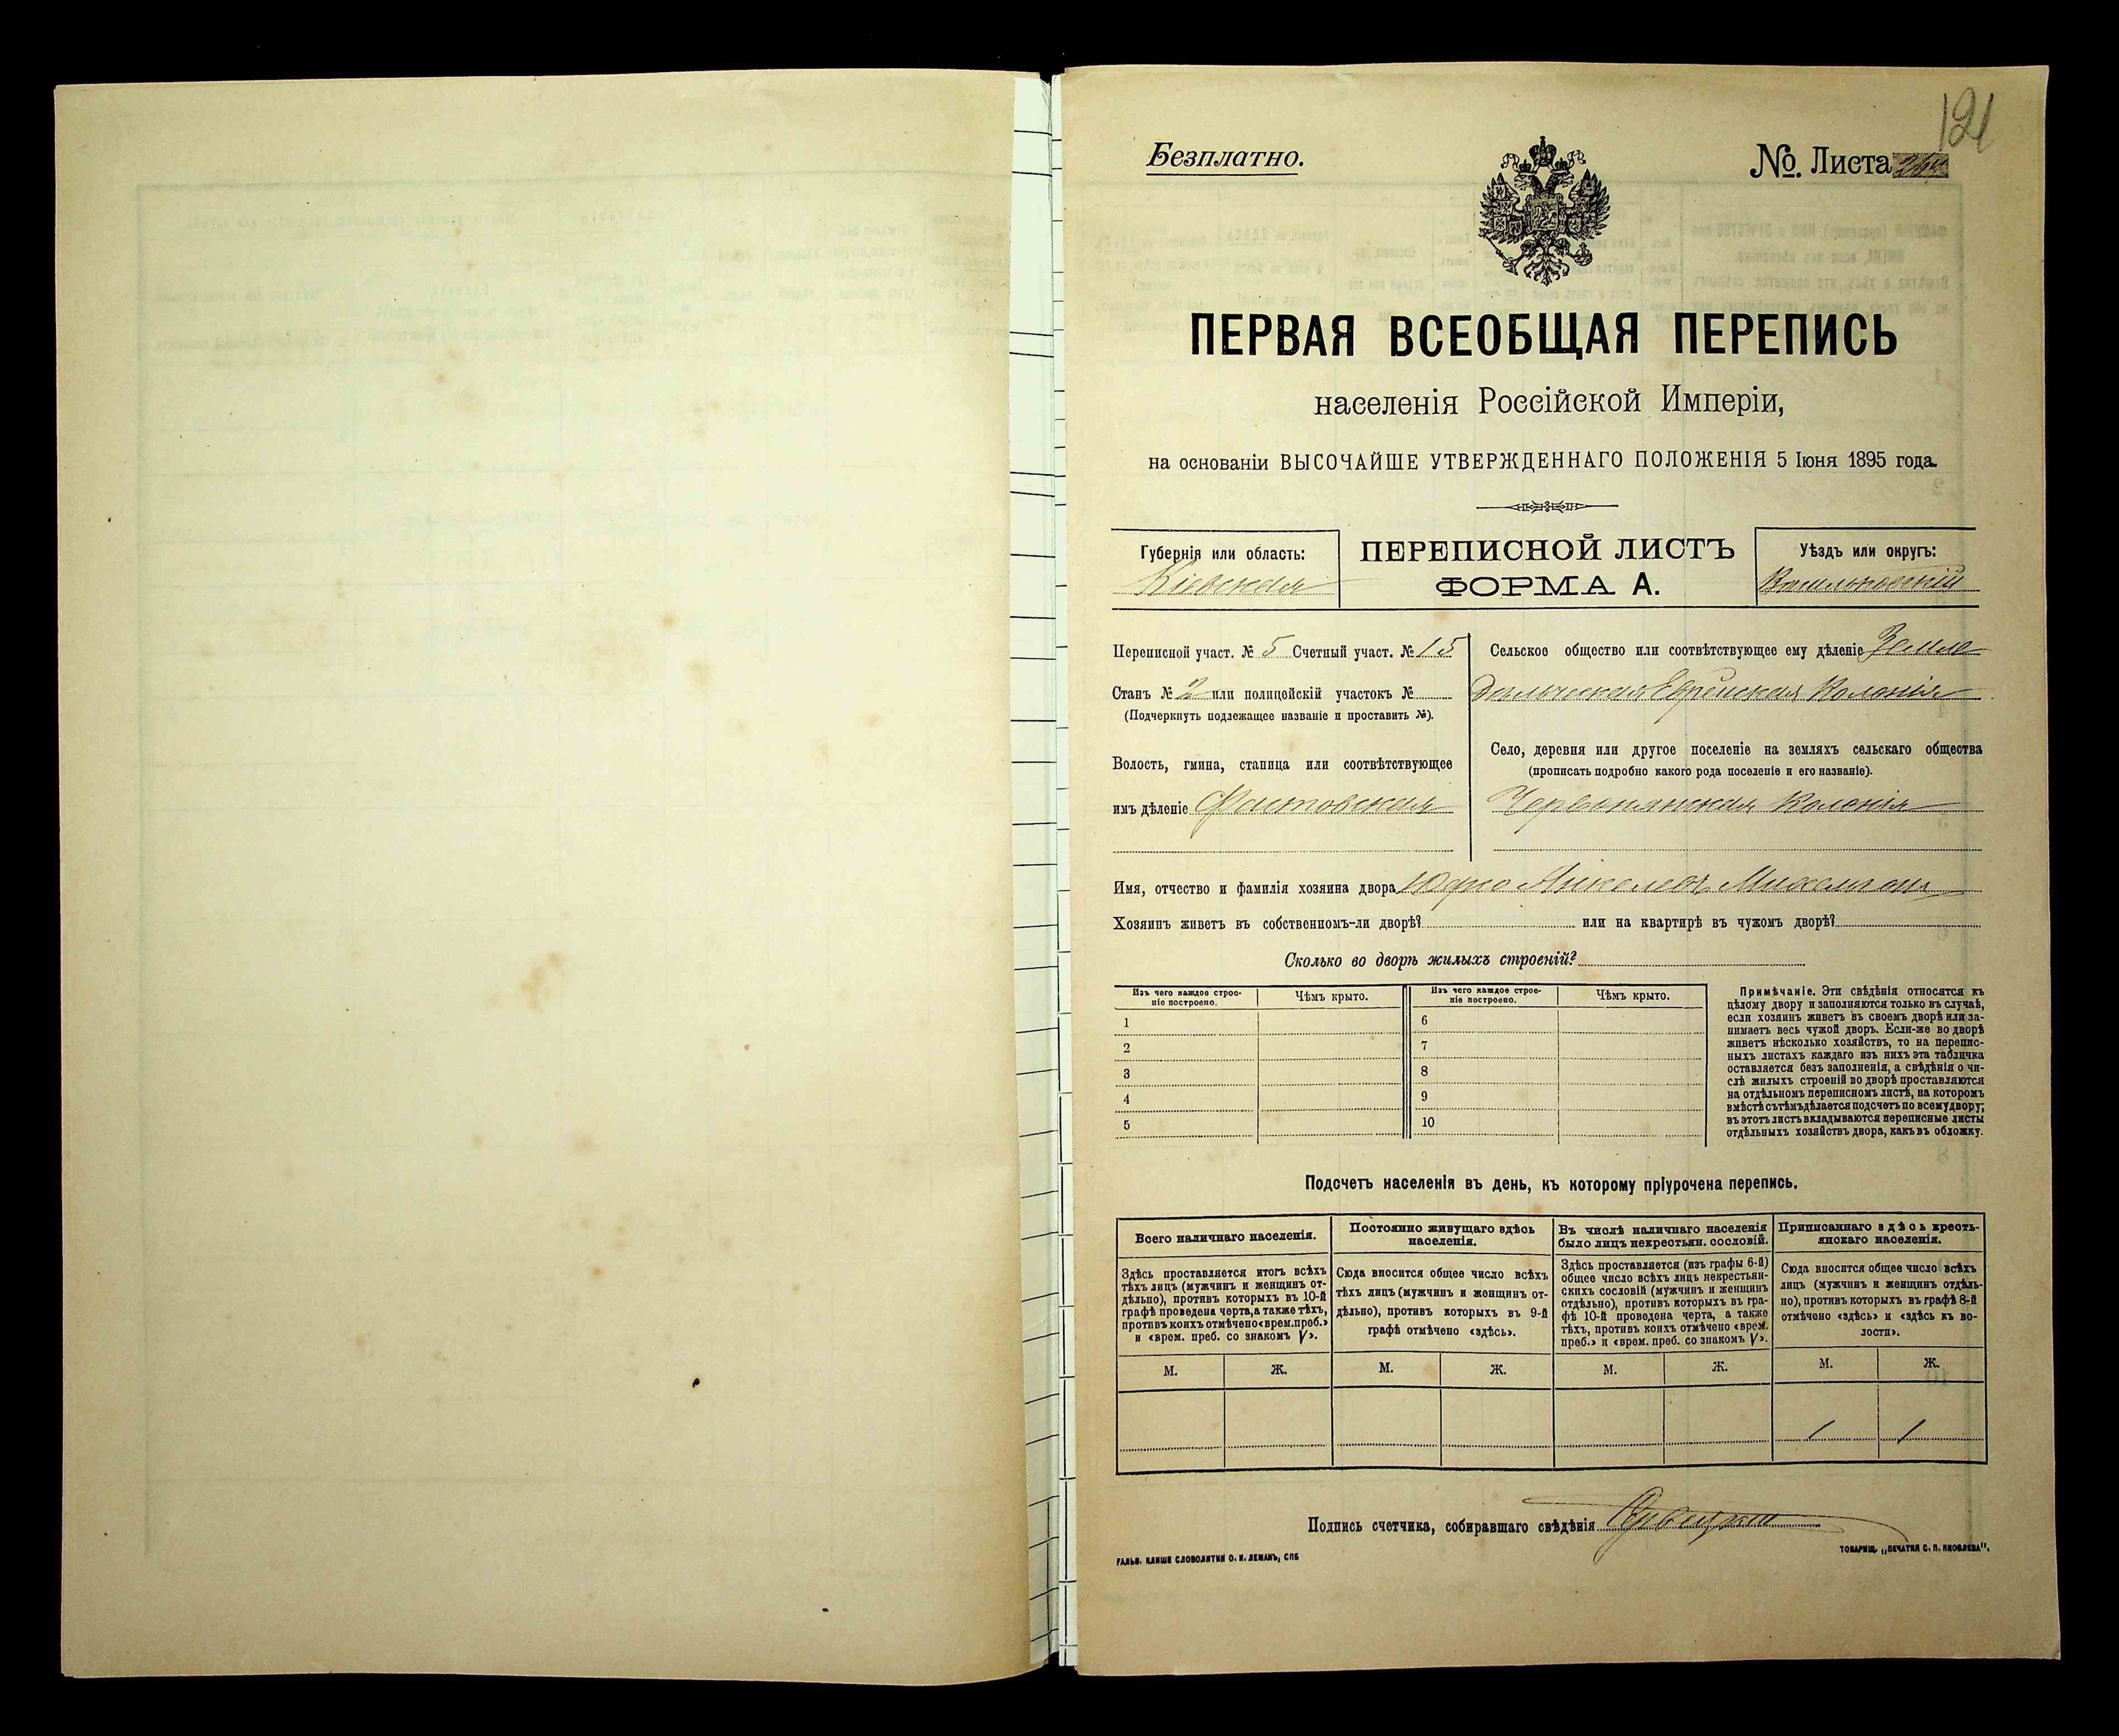 121
Безплатно.
№. Листа
ПЕРВАЯ ВСЕОБЩАЯ ПЕРЕПИСЬ
населенія Россійской Имперіи,
на основаніи ВЫСОЧАЙШЕ УТВЕРЖДЕННАГО ПОЛОЖЕНІЯ 5 Іюня 1895 года.
Губернія или область:
Кіевская
ПЕРЕПИСНОЙ ЛИСТЪ
ФОРМА А.
Уѣздъ или округъ:
Васильковскій
Переписной участ. № 5 Счетный участ. № 15
Станъ № 2 или полицейскій участокъ №
(Подчеркнуть подлежащее названіе и проставить №).
Волость, гмина, станица или соотвѣтствующее
имъ дѣленіе Фастовская
Сельское общество или соотвѣтствующее ему дѣленіе Земле
дѣльческая Еврейская Колонія
Село, деревня или другое поселеніе на земляхъ сельскаго общества
(прописать подробно какого рода поселеніе и его названіе).
Червонянская Колонія
Имя, отчество и фамилія хозяина двора
Хозяинъ живетъ въ собственномъ-ли дворѣ? или на квартирѣ въ чужомъ дворѣ?
Сколько во дворѣ жилыхъ строеній?
Изъ чего каждое строе-
ніе построено.
Чѣмъ крыто.
Изъ чего каждое строе-
ніе построено.
Чѣмъ крыто.
1 6
2 7
3 8
4 9
5 10
Примѣчаніе. Эти свѣдѣнія относятся къ
цѣлому двору и заполняются только въ случаѣ,
если хозяинъ живетъ въ своемъ дворѣ или за-
нимаетъ весь чужой дворъ. Если-же во дворѣ
живетъ нѣсколько хозяйствъ, то на перепис-
ныхъ листахъ каждаго изъ нихъ эта табличка
оставляется безъ заполненія, а свѣдѣнія о чи-
слѣ жилыхъ строеній во дворѣ проставляются
на отдѣльномъ переписномъ листѣ, на которомъ
вмѣстѣ съ тѣмъ дѣлается подсчетъ по всему двору;
въ этотъ листъ вкладываются переписные листы
отдѣльныхъ хозяйствъ двора, какъ въ обложку.
Подсчетъ населенія въ день, къ которому пріурочена перепись.
Всего наличнаго населенія.
Здѣсь проставляется итогъ всѣхъ
тѣхъ лицъ (мужчинъ и женщинъ от-
дѣльно), противъ которыхъ въ 10-й
графѣ проведена черта, а также тѣхъ,
противъ коихъ отмѣчено «врем. преб.»
и «врем. преб. со знакомъ V».
Постоянно живущаго здѣсь
населенія.
Сюда вносится общее число всѣхъ
тѣхъ лицъ (мужчинъ и женщинъ от-
дѣльно), противъ которыхъ въ 9-й
графѣ отмѣчено «здѣсь».
Въ числѣ наличнаго населенія
было лицъ некрестьян. сословій.
Здѣсь проставляется (изъ графы 6-й)
общее число всѣхъ лицъ некрестьян-
скихъ сословій (мужчинъ и женщинъ
отдѣльно), противъ которыхъ въ гра-
фѣ 10-й проведена черта, а также
тѣхъ, противъ коихъ отмѣчено «врем.
преб.» и «врем. преб. со знакомъ V».
Приписаннаго здѣсь кресть-
янскаго населенія.
Сюда вносится общее число всѣхъ
лицъ (мужчинъ и женщинъ отдѣль-
но), противъ которыхъ въ графѣ 8-й
отмѣчено «здѣсь» и «здѣсь къ во-
лости».
М. Ж. М. Ж. М. Ж. М. Ж.
1 1
Подпись счетчика, собиравшаго свѣдѣнія
ГАЛЬВ. КЛИШЕ СЛОВОЛИТНИ О. И. ЛЕМАНЪ, СПБ
ТОВАРИЩ. „ПЕЧАТНЯ С. П. ЯКОВЛЕВА".